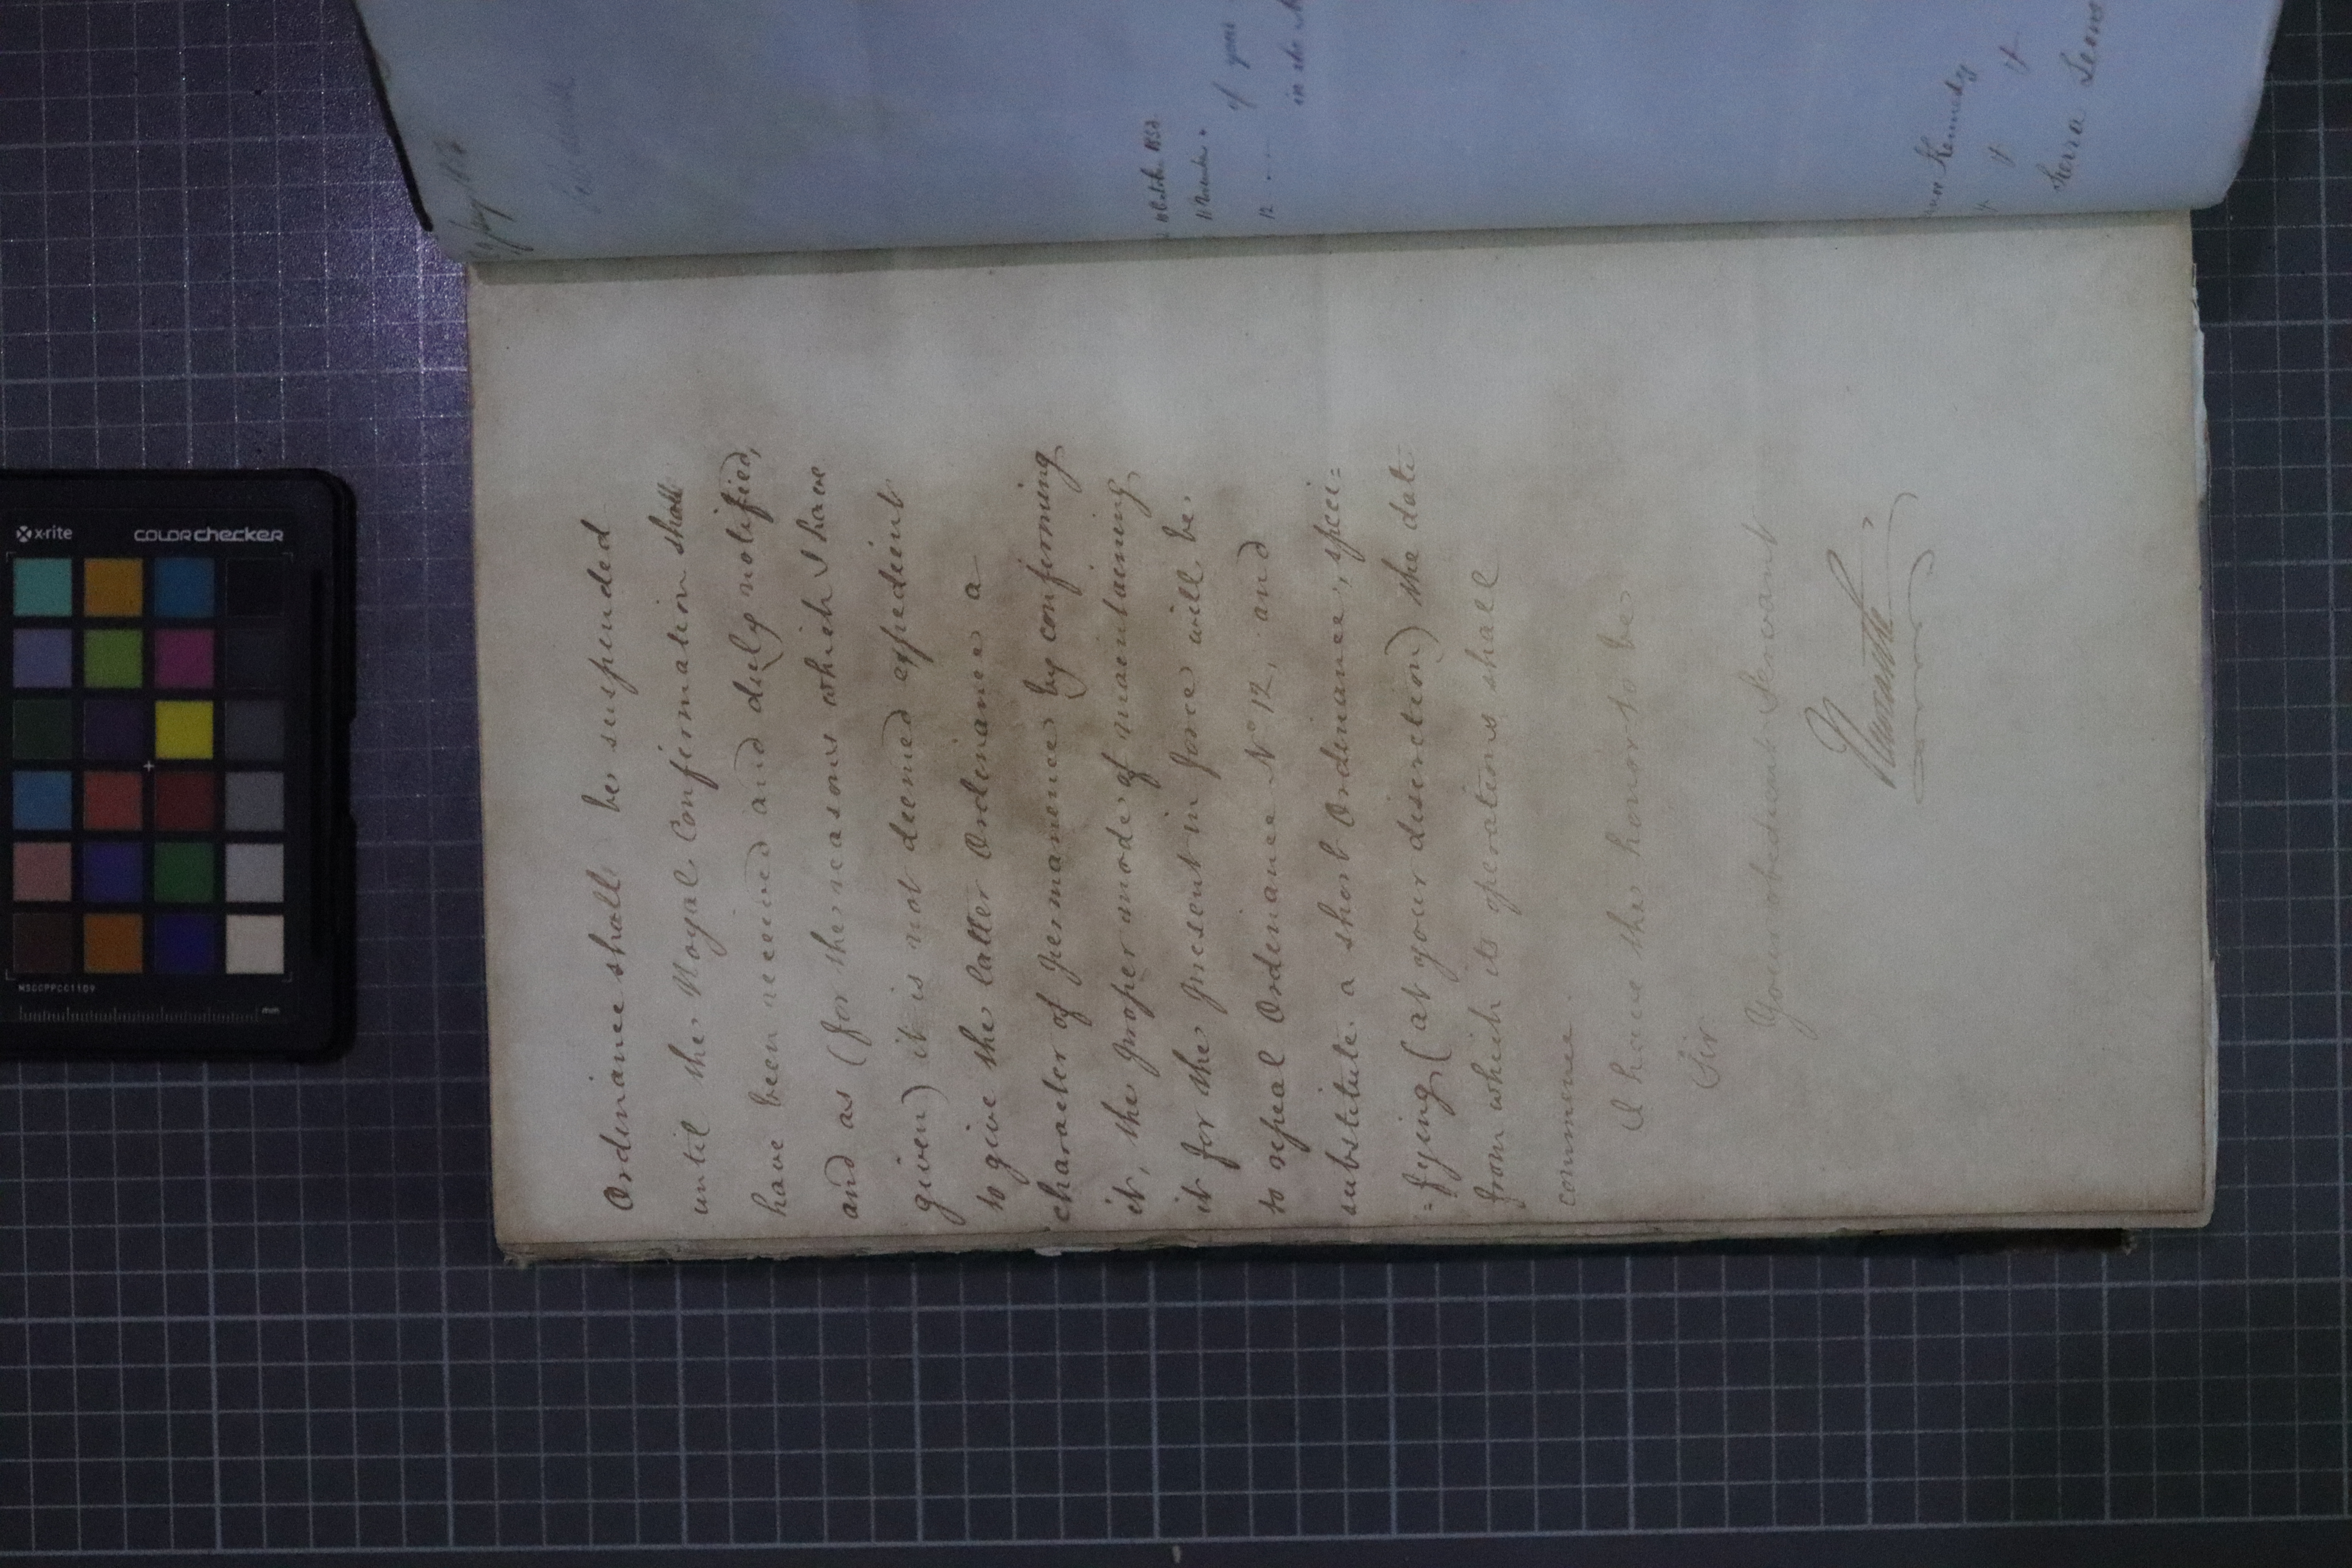 Ordinance shall be suspended
until the Royal Confirmation shall
have been received and duly notified,
and as (for the reasons which I have
given) it is not deemed expedient
to give the latter Ordinance a
character of permanence by confirming
it, the proper mode of maintaining
it for the present in force will be
to repeal Ordinance No 12, and
substitute a short Ordinance, speci=
=fying (at your discretion) the date
from which its operations shall
commence.
I have the honor to be
Sir
Your obedient Servant
Newcastle
of your
12
in the
Kennedy
Sierra Leone
x-rite
colorchecker
mm